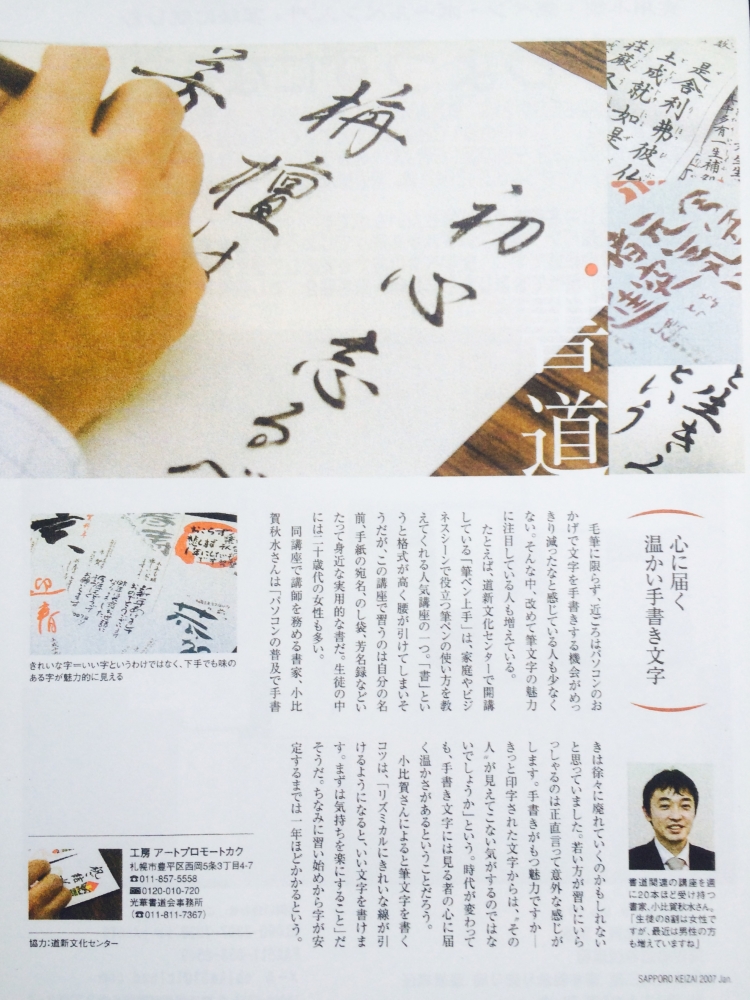 梅
檀は
初
心
忘るべ
是舎利弗彼仏
土成就如是
荘厳又
生き
という
書道
心に届く
温かい手書き文字
　毛筆に限らず、近ごろはパソコンのお
かげで文字を手書きする機会がめっ
きり減ったなと感じている人も少なく
ない。そんな中、改めて筆文字の魅力
に注目している人も増えている。
　たとえば、道新文化センターで開講
している「筆ペン上手」は、家庭やビジ
ネスシーンで役立つ筆ペンの使い方を教
えてくれる人気講座の一つ。「書」とい
うと格式が高く腰が引けてしまいそ
うだが、この講座で習うのは自分の名
前、手紙の宛名、のし袋、芳名録などとい
たって身近な実用的な書だ。生徒の中
には二十歳代の女性も多い。
　同講座で講師を務める書家、小比
賀秋水さんは「パソコンの普及で手書
きは徐々に廃れていくのかもしれない
と思っていました。若い方が習いにいら
っしゃるのは正直言って意外な感じが
します。手書きがもつ魅力ですか―
きっと印字された文字からは、“その
人”が見えてこない気がするのではな
いでしょうか」という。時代が変わって
も、手書き文字には見る者の心に届
く温かさがあるということだろう。
　小比賀さんによると筆文字を書く
コツは、「リズミカルにきれいな線が引
けるようになると、いい文字を書けま
す。まずは気持ちを楽にすること」だ
そうだ。ちなみに習い始めから字が安
定するまでは一年ほどかかるという。
迎春
きれいな字＝いい字というわけではなく、下手でも味の
ある字が魅力的に見える
書道関連の講座を週
に20本ほど受け持つ
書家、小比賀秋水さん。
「生徒の8割は女性で
すが、最近は男性の方
も増えていますね」
工房 アートプロモートカク
札幌市豊平区西岡5条3丁目4-7
☎011-857-5558
0120-010-720
光華書道会事務所
（☎011-811-7367）
協力：道新文化センター
SAPPORO KEIZAI 2007 Jan.